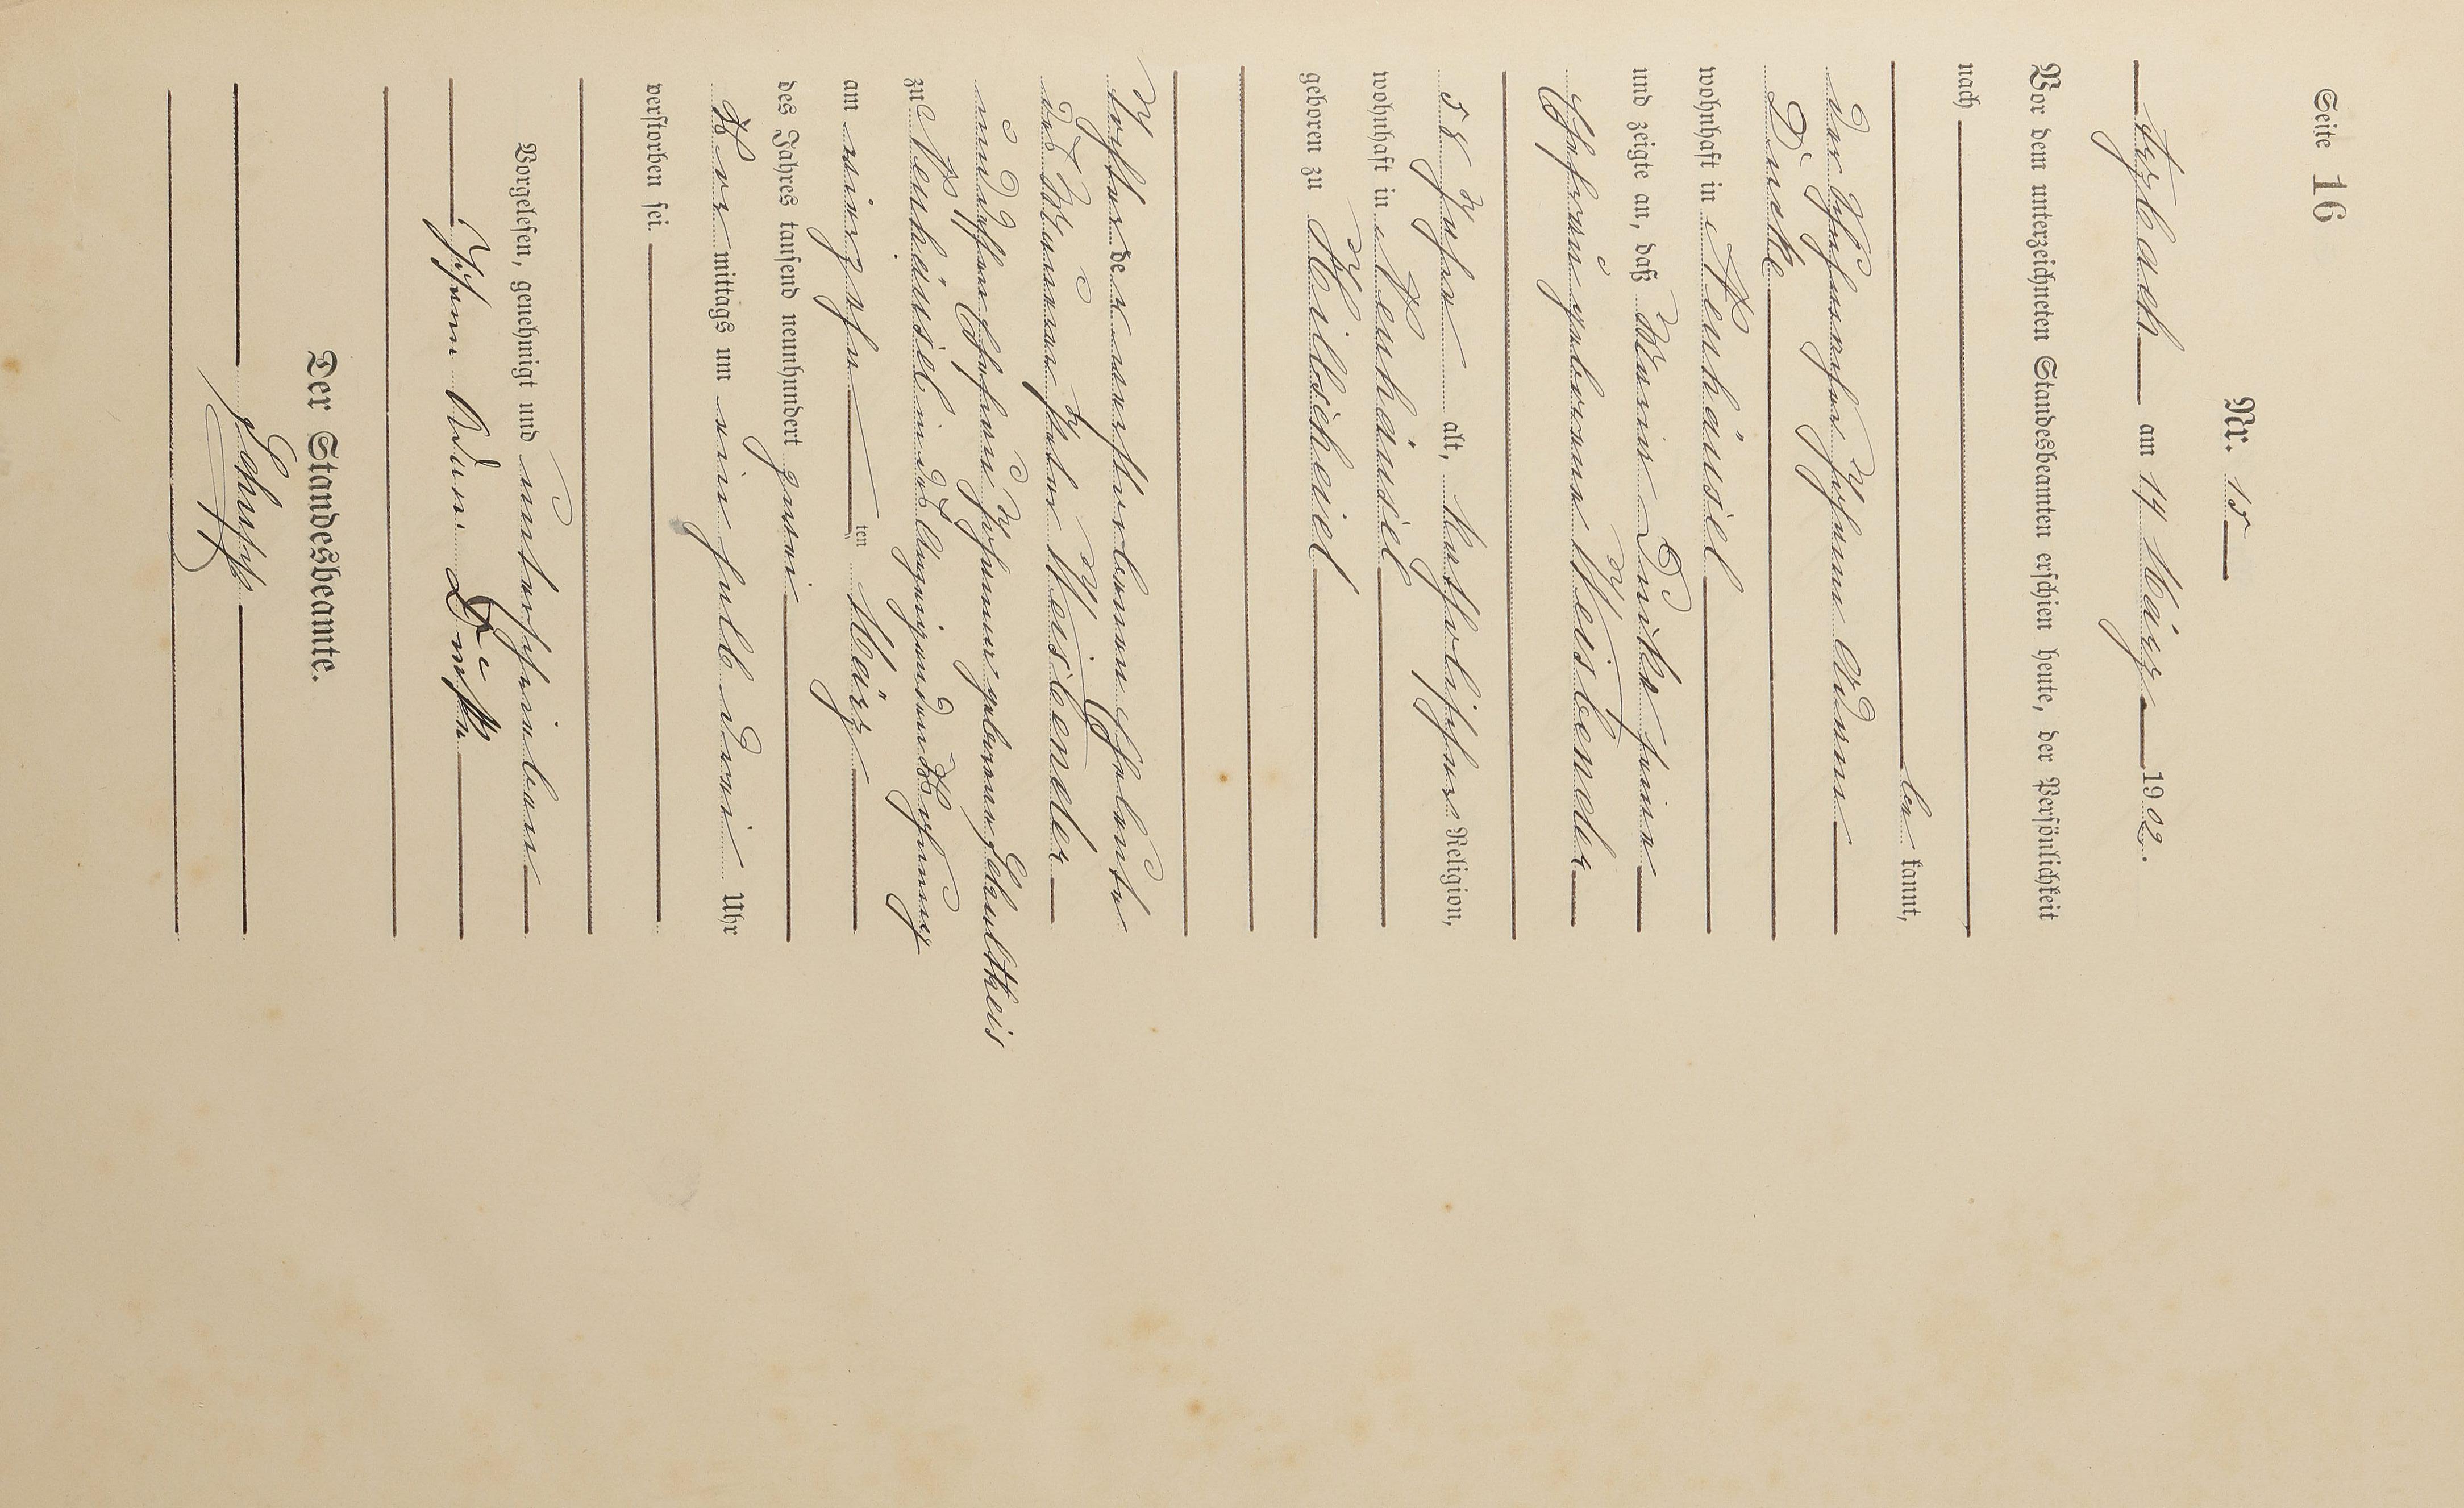 Seite 16
Nr. 15
Arzbach am 14 März 1902.
Vor dem unterzeichneten Standesbeamten erschien heute, der Persönlichkeit
nach
be kannt,
der Johann Adam
Ducke
wohnhaft in Neuhäusel
und zeigte an, daß Maria Ducke seine
Ehefrau geborene Weisbender
58 Jahre alt, katholischer Religion,
wohnhaft in Neuhäusel
geboren zu Hillscheid
Tochter der verstorbenen Eheleute
des Peter Weisbender
und dessen Ehefrau Johanna geborene
zu Neuhäusel in des Anzeigenden Wohnung
am vierzehn ten März
des Jahres tausend neunhundert zwei
Vor mittags um ein halb drei Uhr
verstorben sei.
Vorgelesen, genehmigt und unterschrieben
Johann Adam Ducke
Der Standesbeamte.